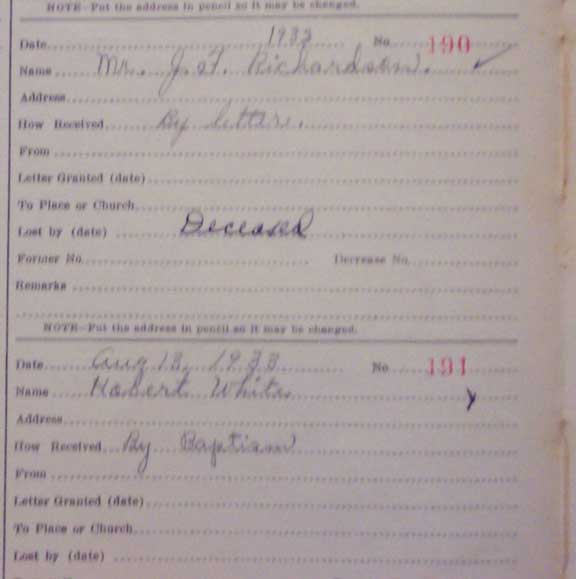 NOTE—Put the address in pencil so it may be changed.
Date 1932 No. 190
Name Mr. J. F. Richardson.
Address
How Received By letter.
From
Letter Granted (date)
To Place or Church
Lost by (date) Deceased
Former No. Decrease No.
Remarks
NOTE—Put the address in pencil so it may be changed.
Date Aug 13, 1933 No 191
Name Robert White
Address
How Received By Baptism
From
Letter Granted (date)
To Place or Church
Lost by (date)